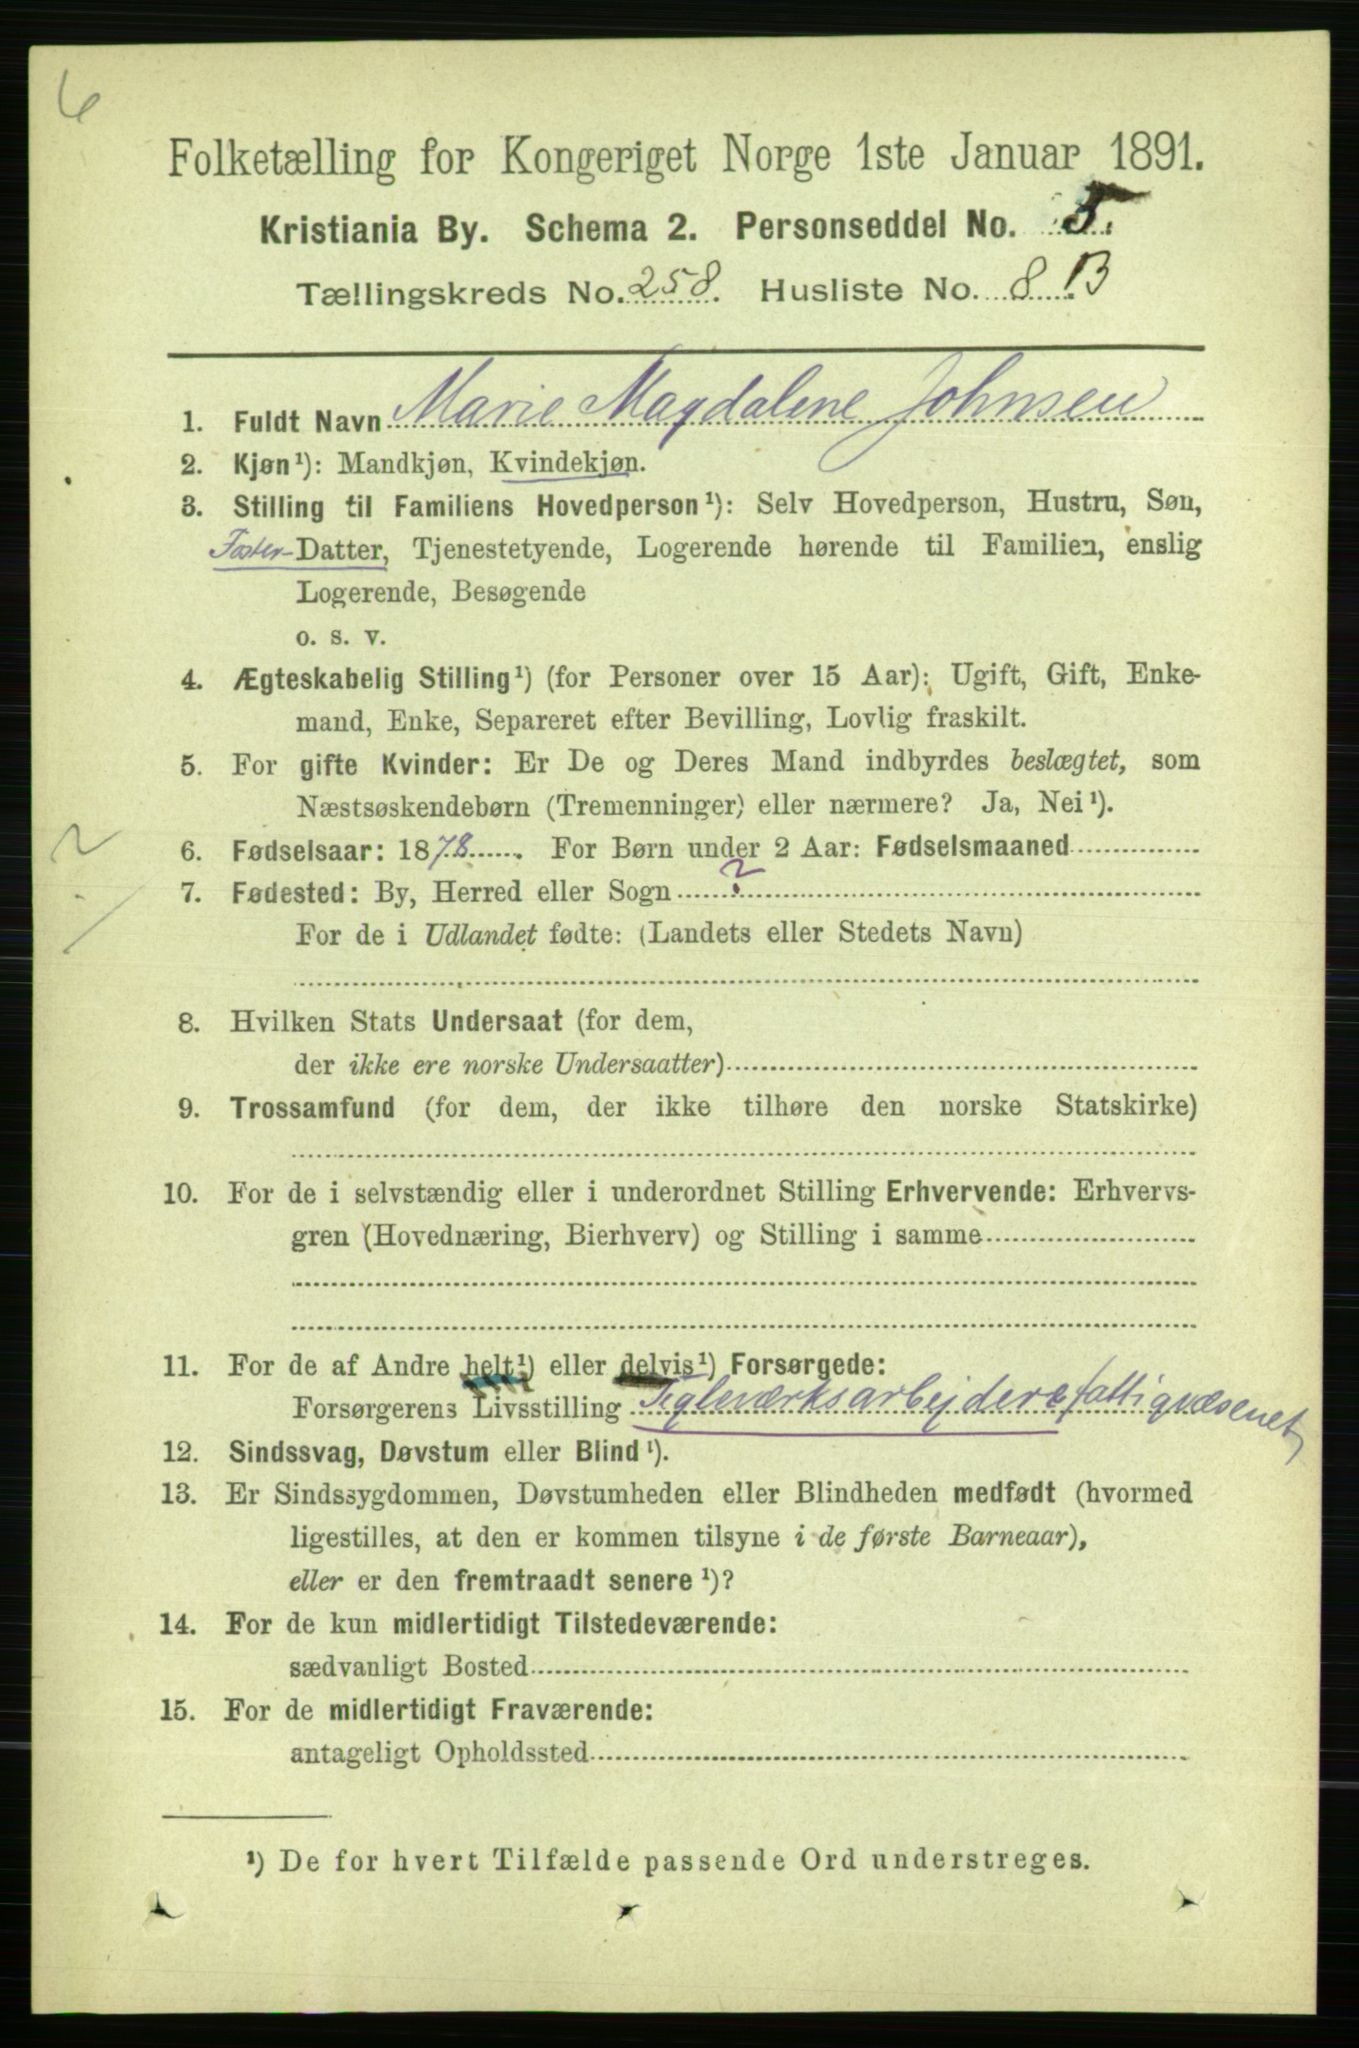 6
Folketælling for Kongeriget Norge 1ste Januar 1891.
Kristiania By. Schema 2. Personseddel No. 5.
Tællingskreds No. 258. Husliste No. 8 B
1. Fuldt Navn Marie Magdalene Johnsen
2. Kjøn¹): Mandkjøn, Kvindekjøn.
3. Stilling til Familiens Hovedperson¹): Selv Hovedperson, Hustru, Søn,
Foster-Datter, Tjenestetyende, Logerende hørende til Familien, enslig
Logerende, Besøgende
o. s. v.
4. Ægteskabelig Stilling¹) (for Personer over 15 Aar): Ugift, Gift, Enke-
mand, Enke, Separeret efter Bevilling, Lovlig fraskilt.
5. For gifte Kvinder: Er De og Deres Mand indbyrdes beslægtet, som
Næstsøskendebørn (Tremenninger) eller nærmere? Ja, Nei¹).
6. Fødselsaar: 1878. For Børn under 2 Aar: Fødselsmaaned
?
7. Fødested: By, Herred eller Sogn ?
For de i Udlandet fødte: (Landets eller Stedets Navn)
8. Hvilken Stats Undersaat (for dem,
der ikke ere norske Undersaatter)
9. Trossamfund (for dem, der ikke tilhøre den norske Statskirke)
10. For de i selvstændig eller i underordnet Stilling Erhvervende: Erhvervs-
gren (Hovednæring, Bierhverv) og Stilling i samme
11. For de af Andre helt¹) eller delvis¹) Forsørgede:
Forsørgerens Livsstilling Teglværksarbejder &fattigvæsenet
12. Sindssvag, Døvstum eller Blind¹).
13. Er Sindssygdommen, Døvstumheden eller Blindheden medfødt (hvormed
ligestilles, at den er kommen tilsyne i de første Barneaar),
eller er den fremtraadt senere¹)?
14. For de kun midlertidigt Tilstedeværende:
sædvanligt Bosted
15. For de midlertidigt Fraværende:
antageligt Opholdssted
¹) De for hvert Tilfælde passende Ord understreges.